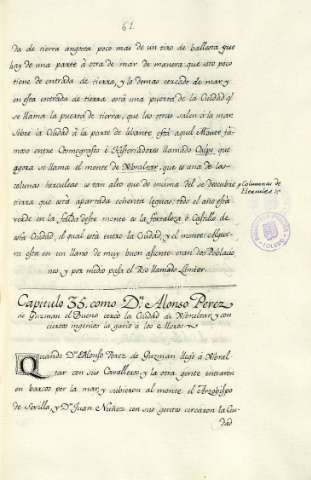 61
da de tierra angosta poco mas de un tiro de ballesta que
hay de una parte á otra de mar de manera que esto poco
tiene de entrada de tierra, y lo demas cercado de mar y
en esta entrada de tierra está una puerta de la Ciudad q̃
se llama la puerta de tierra, que las otras salen a la mar
Sobre la Ciudad á la parte de levante está aquel Monte fa-
moso entre Cosmografos i Historiadores llamado Calpe que
agora se llama el monte de Gibraltar, que es una de las
colunas herculeas es tan alto que de encima del se descubre
Columnas de
Hercules
tierra que está apartada ochenta leguas; todo el año está
verde en la falda deste monte es la fortaleza i Castillo de
esta Ciudad, el qual está entre la Ciudad, y el monte:
esta en un llano de muy buen asiento eran dos Poblacio
nes y por medio pasa el Rio llamado
Capitulo 35. como Dn. Alonso Perez
de Guzman el Bueno cercó la Ciudad de Gibraltar, y con
ciertos ingenios la ganó á los Moros
Quando Dn. Alonso Perez de Guzman llegó á Gibral
tar con sus Cavalleros y la otra gente entraron
en barcos por la mar y subieron al monte el Arzobispo
de Sevilla, y Dn. Juan Nuñez con sus gentes cercaron la Ciu
dad